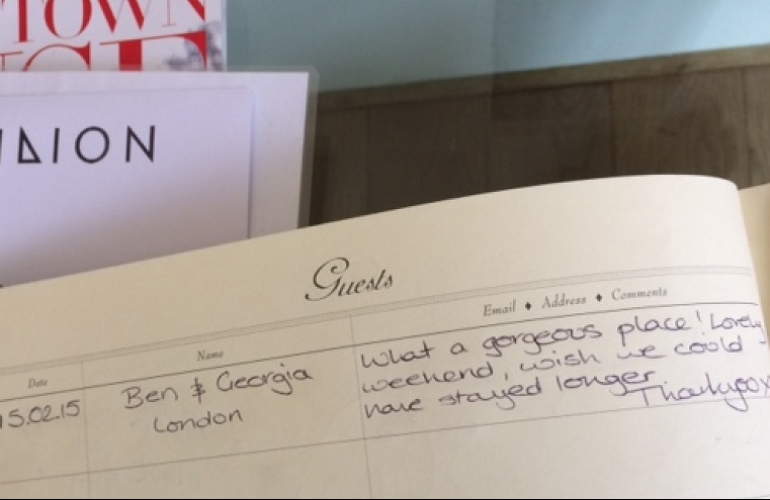 TOWN
DION
Guests
Date
Name
Email ♦ Address ♦ Comments
15.02.15
Ben & Georgia
London
What a gorgeous place! Lovely
weekend, wish we could
have stayed longer
Thankyou x